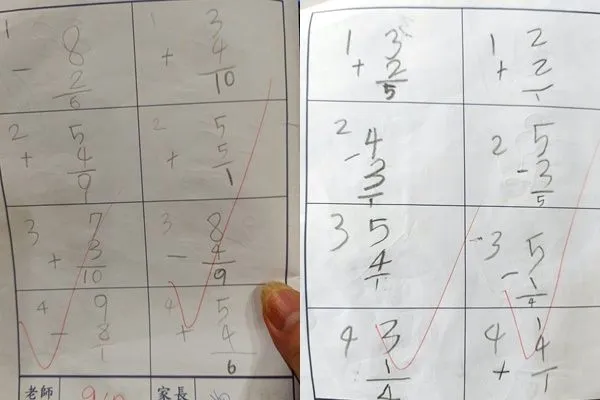 1 8
- 2
6
1 3
+ 4
10
2 5
+ 4
9
2 5
+ 5
1
3 7
+ 3
10
3 8
- 4
9
4 9
- 8
1
4 5
+ 4
6
老師
家長
1 3
+ 2
5
1 2
+ 2
1
2 4
- 3
1
2 5
- 3
5
3 5
4
1
3 5
- 1
4
4 3
1
4
4 1
+ 4
1